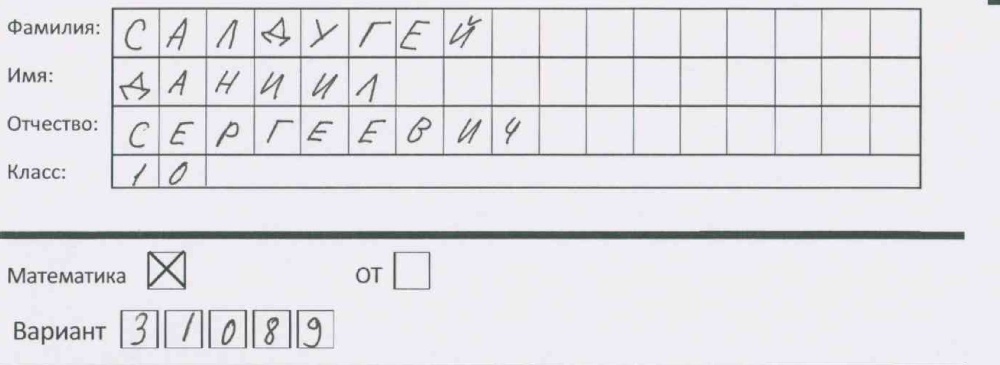 Фамилия: САЛДУГЕЙ
Имя: ДАНИИЛ
Отчество: СЕРГЕЕВИЧ
Класс: 10
Математика ☒ ОТ ☐
Вариант 31089